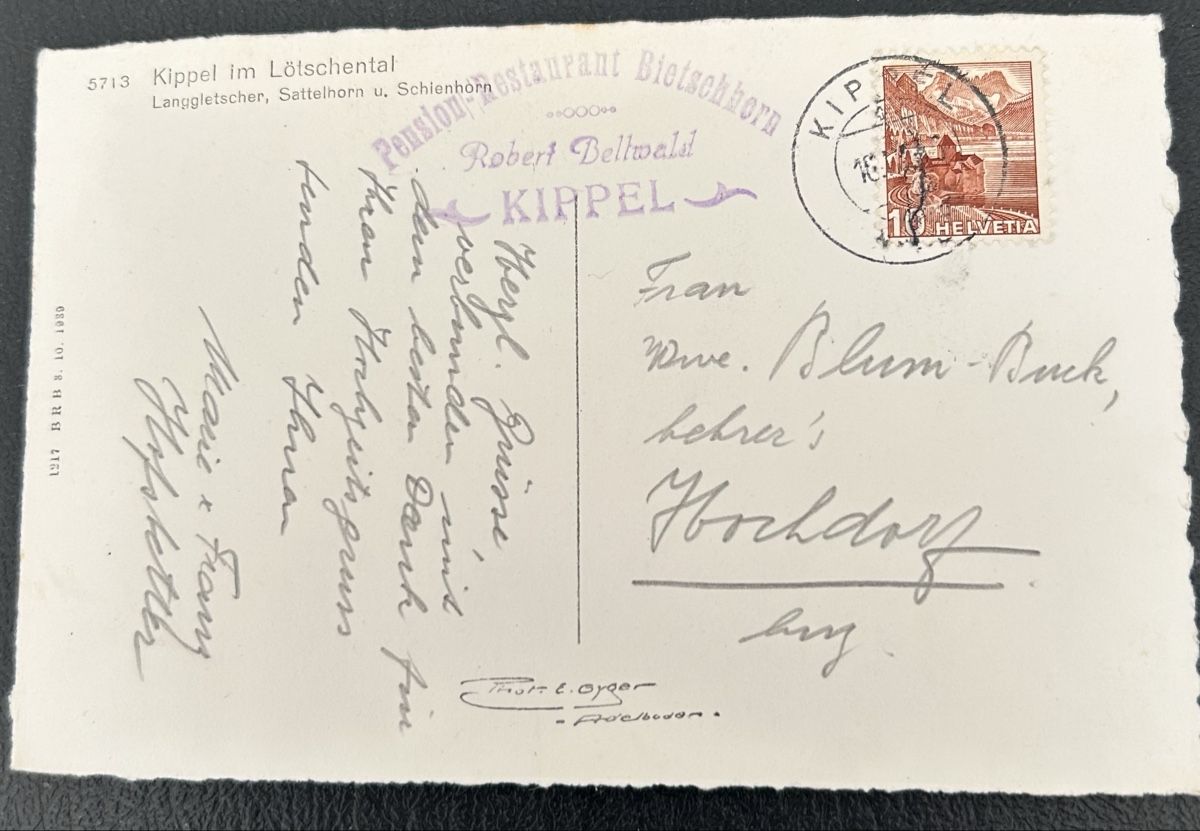 5713 Kippel im Lötschental
Langgletscher, Sattelhorn u. Schienhorn
Pension-Restaurant Bietschhorn
Robert Bellwald
KIPPEL
KIPPEL
10 HELVETIA
Herzl. Grüsse
verbunden mit
dem besten Dank für
Ihren Hochzeitsgruss
senden Ihnen
Marie & Franz
Hofstetter
Frau
Wwe. Blum-Buck,
Lehrer's
Hochdorf
Luz.
1917 BRB 8. 10. 1939
Phot. E. Gyger
Adelboden